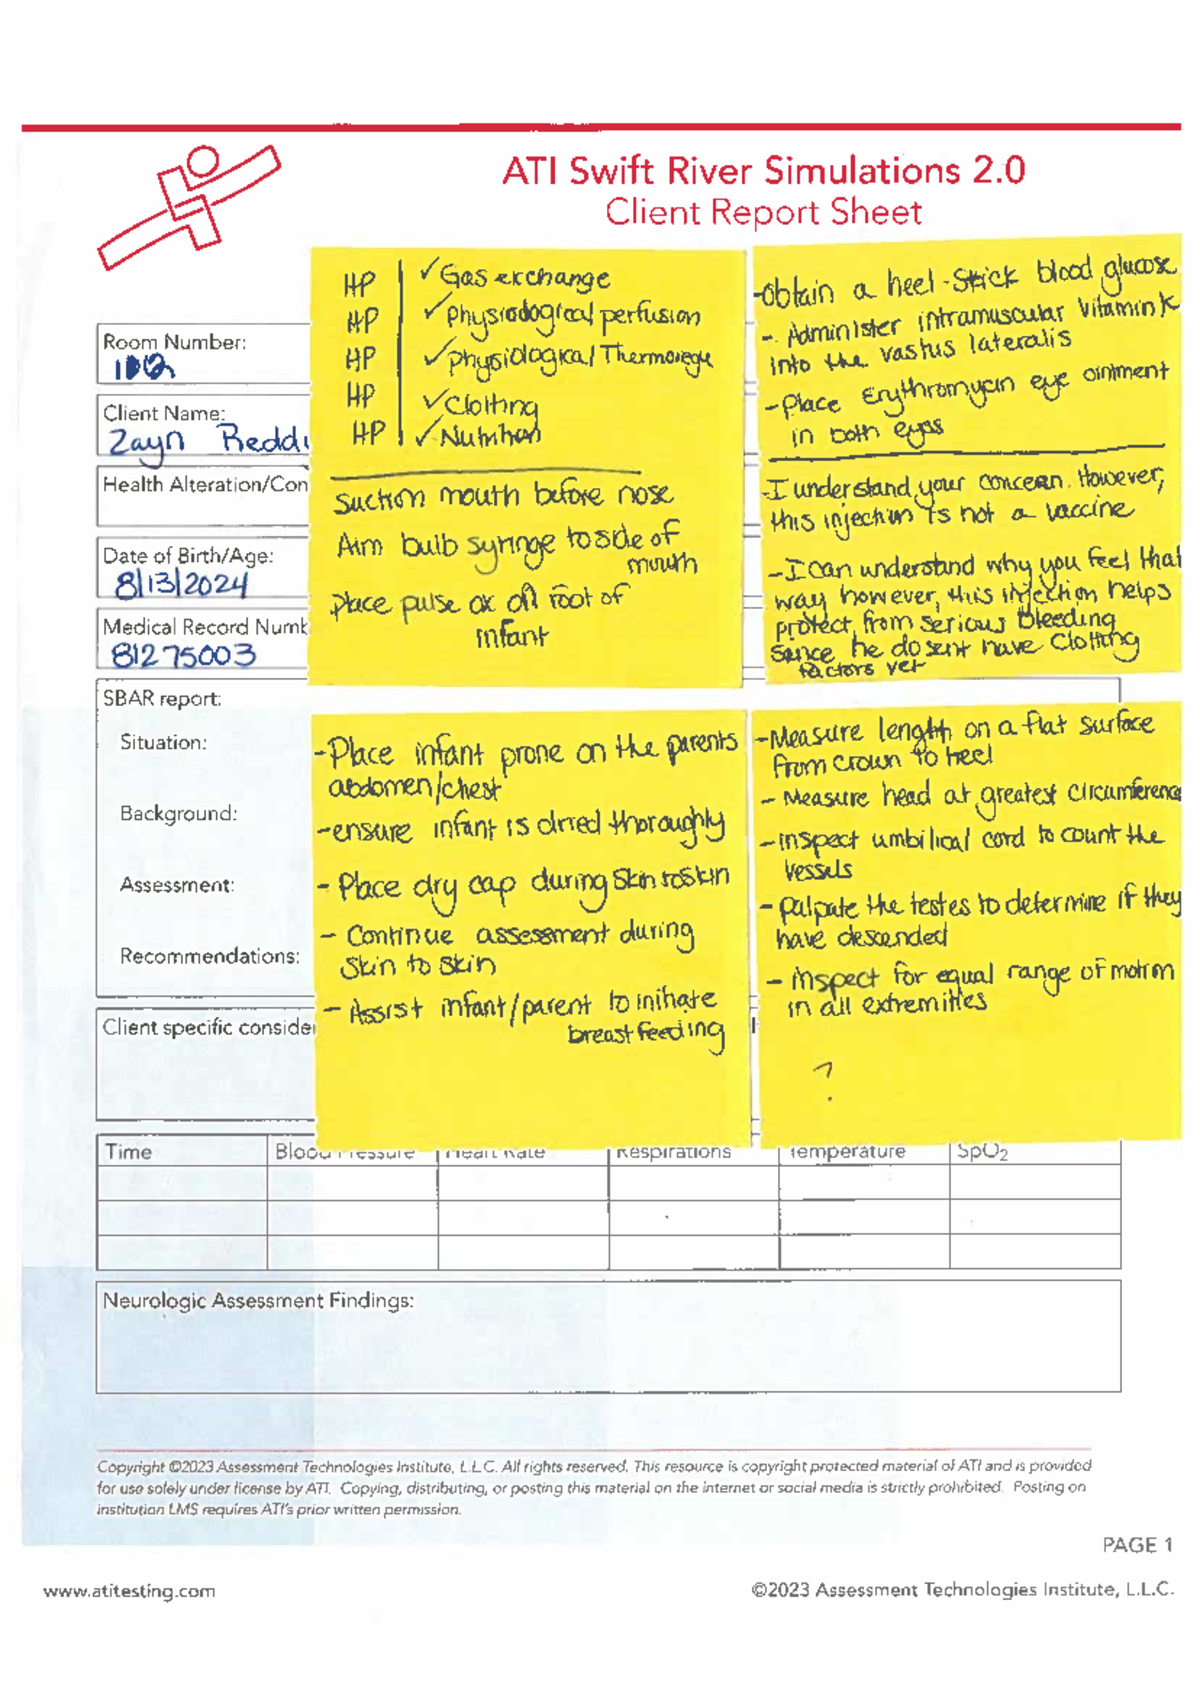 ATI Swift River Simulations 2.0
Client Report Sheet
Room Number:
Client Name:
Zayn Reddi
Health Alteration/Con
Date of Birth/Age:
8/13/2024
Medical Record Numb
81275003
HP ✓Gas exchange
HP ✓Physiological perfusion
HP ✓Physiological Thermoregu
HP ✓Clotting
HP ✓Nutrition
Suction mouth before nose
Aim bulb syringe to side of
mouth
Place pulse ox on foot of
infant
-Obtain a heel-stick blood glucose
- Administer intramuscular Vitamin K
into the vastus lateralis
-Place Erythromycin eye ointment
in both eyes
-I understand your concern. However,
this injection is not a vaccine
-I can understand why you feel that
way however, this injection helps
protect from serious bleeding
sence he dosent have clotting
factors yet
SBAR report:
Situation:
Background:
Assessment:
Recommendations:
Client specific consider
-Place infant prone on the parents
abdomen/chest
-ensure infant is dried thoroughly
- Place dry cap during Skin to Skin
- Continue assessment during
Skin to Skin
- Assist infant/parent to initiate
breast feeding
-Measure length on a flat surface
from crown to heel
- Measure head at greatest circumference
-inspect umbilical cord to count the
vessels
- palpate the testes to determine if they
have descended
- inspect for equal range of motion
in all extremities
?
Time Blood Pressure Heart Rate Respirations Temperature SpO2
Neurologic Assessment Findings:
Copyright ©2023 Assessment Technologies Institute, L.L.C. All rights reserved. This resource is copyright protected material of ATI and is provided
for use solely under license by ATI. Copying, distributing, or posting this material on the internet or social media is strictly prohibited. Posting on
institution LMS requires ATI's prior written permission.
PAGE 1
www.atitesting.com
©2023 Assessment Technologies Institute, L.L.C.